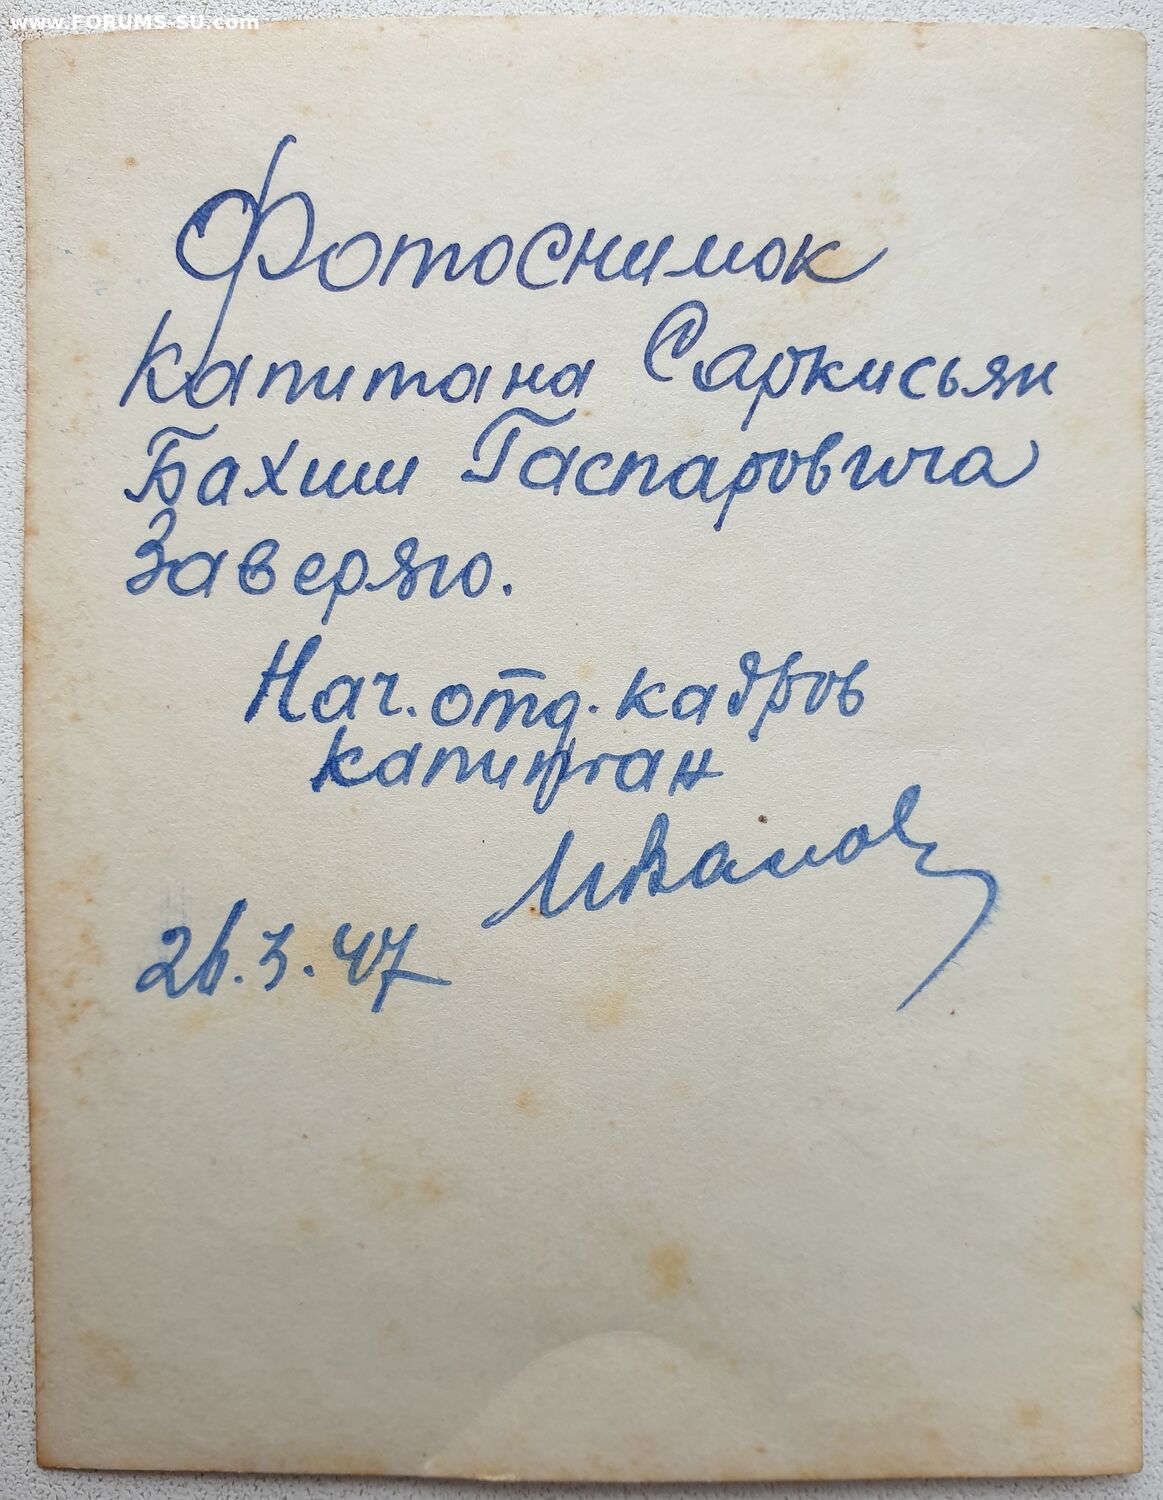 www.FORUMS-SU.com
Фотоснимок
Капитана Саркисьян
Бахши Гаспаровича
Заверяю.
Нач. отд. кадров
капитан
Иванов
26.3.47